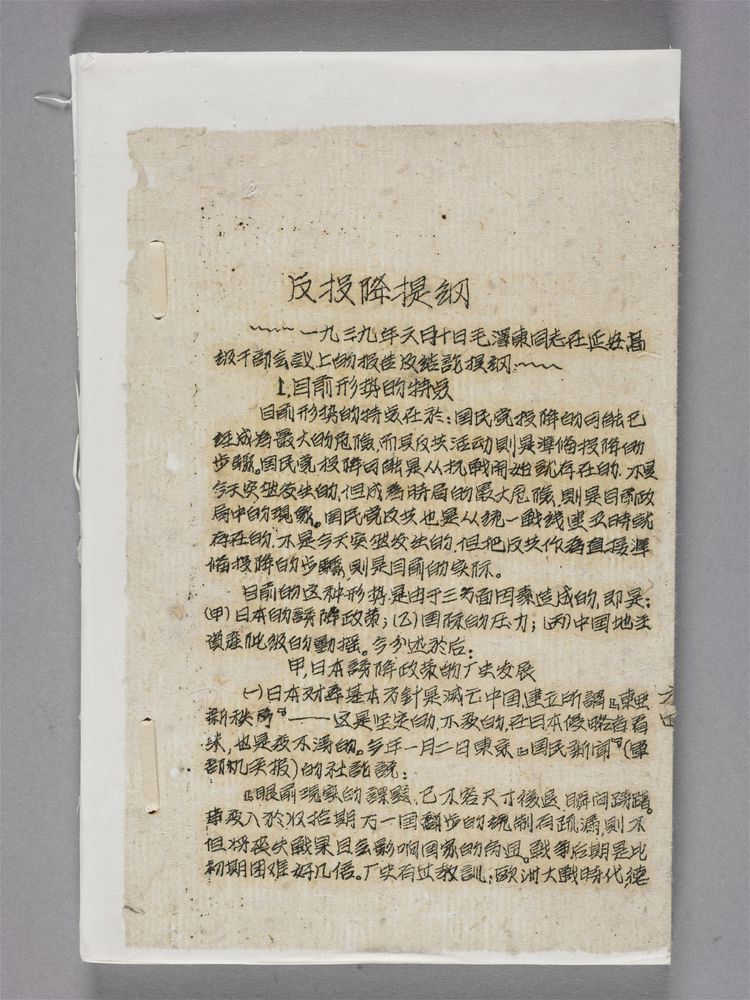 反投降提纲
一九三九年六月十日毛澤東同志在延安高
级干部会议上的报告及结論提綱
1.目前形势的特点
目前形势的特点在於：国民党投降的可能已
经成為最大的危險，而其反共活动則是準備投降的
步驟。国民党投降可能是从抗戰開始就存在的，不是
今天突然发生的，但成為時局的最大危險，則是目前政
局中的現象。国民党反共也是从统一戰线建立時就
存在的，不是今天突然发生的，但把反共作為直接準
備投降的步驟，則是目前的实际。
目前的这种形势是由于三方面因素造成的，即是：
（甲）日本的誘降政策；（乙）国际的压力；（丙）中国地主
資產阶级的動摇。今分述於后：
甲，日本誘降政策的厂史发展
㈠日本对華基本方針是滅亡中国建立所謂『東亜
新秩序』——这是坚定的，不变的，在日本侵略者看
来，也是变不得的。今年一月二日東京『国民新聞』（軍
部机关报）的社論說：
『眼前現象的課題，已不容尺寸後退，瞬间躊躇。
收拾期万一国翻步的统制有疏漏，則不
但将丧失戰果且会影响国家的命运。戰争后期是比
初期困难好几倍。厂史有过教訓：欧洲大戰時代德